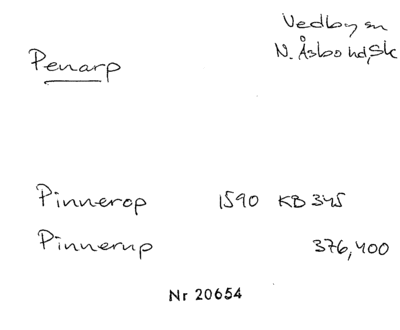 Vedby sn
N. Åsbo hd, Sk
Penarp
Pinnerop 1590 KB 345
Pinnerup 376, 400
Nr 20654